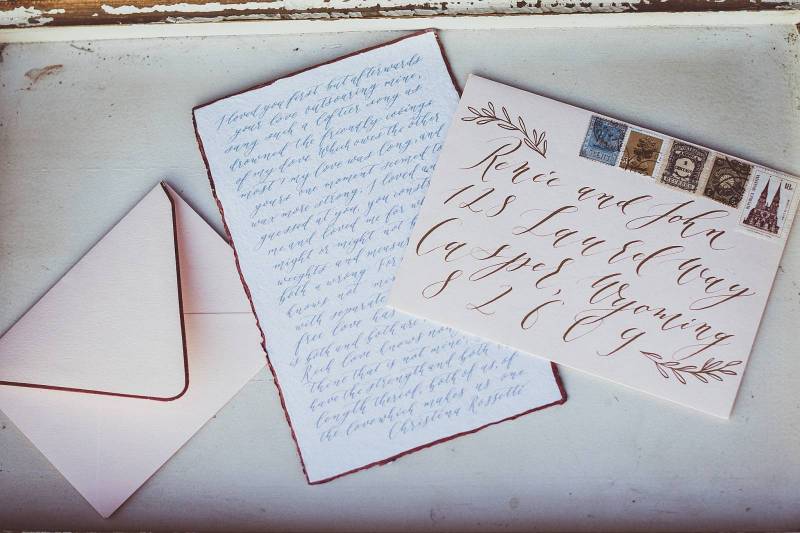 I loved you first but afterwards
your love outsoaring mine,
sang such a loftier song as
drowned the friendly cooings
of my dove. Which owes the other
most? my love was long, and
yours one moment seemed to
wax more strong; I loved
guessed at you, you
me and loved me for
might or might not
weights and
both a wrong. For
knows not
with separate
free love has
is both and both are
Rich love knows
thine that is not mine;
have the strength and both
length thereof, both of us, of
the love which makes us one
Christina Rossetti
Renée and John
128 Laurel Way
Casper, Wyoming
82609